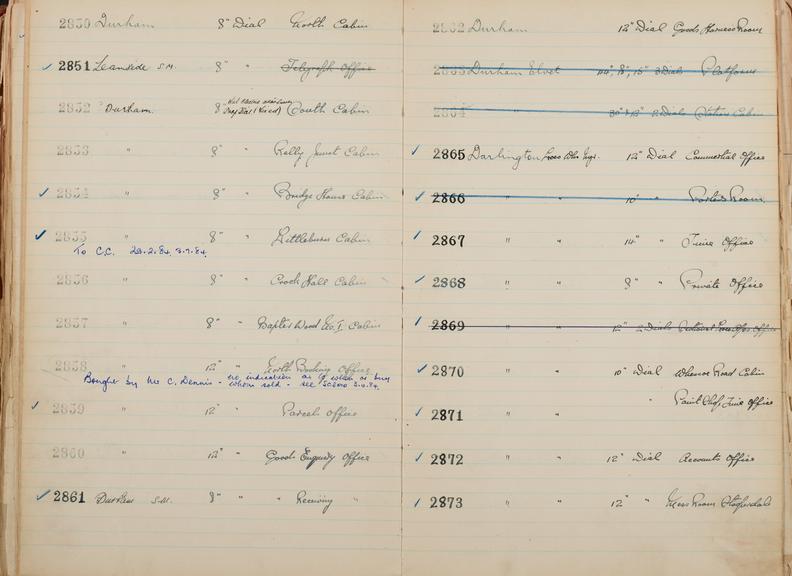 2850 Durham 8" Dial North Cabin
2851 Leamside S.M. 8" " Telegraph Office
2852 Durham 8" South Cabin
2853 " 8" " Relly Junct Cabin
2854 " 8" " Bridge House Cabin
2855 " 8" " Littleburn Cabin
To C.C. 28.2.84.
2856 " 8" " Crook Hall Cabin
2857 " 8" " Baxter Wood No. 1 Cabin
2858 " 12" " North Booking Office
Bought by Mr C. Dennis - no indication as to when or by
whom sold - see
2859 " 12" " Parcel Office
2860 " 12" " Goods Enquiry Office
2861 Durham S.M. 8" " " Receiving "
2862 Durham 12" Dial Goods Harness Room
2863 Durham Elvet 3 Dials Platforms
2864 " 2 Dials Station Cabin
2865 Darlington 12" Dial Commercial Office
2866 " " 10" " Porters Room
2867 " " 14" " Time Office
2868 " " 8" " Private Office
2869 " " 12" 2 Dials
2870 " " 10" Dial Whessoe Road Cabin
2871 " " " Paint Shop, Time Office
2872 " " 12" Dial Accounts Office
2873 " " 12" " Mess Room